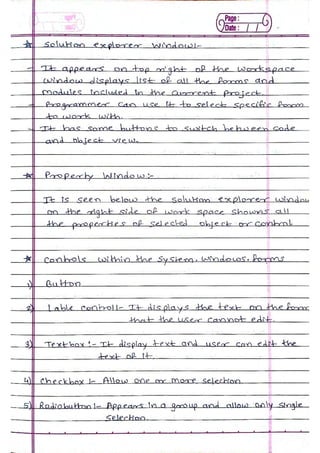 Page :
Date : / /
* Solution explorer window:-
- It appears on top right of the workspace
window displays list of all the forms and
modules included in the current project.
- Programmer can use it to select specific form
to work with.
- It has some buttons to switch between code
and object view.
* Property Window:-
It is seen below the solution explorer window
on the right side of work space showns all
the properties of selected object or control
* Controls within the system. windows. forms
1) Button
2) Lable controll- It displays the text on the form
that the user cannot edit.
3) Textbox :- It display text and user can edit the
text of it.
4) Checkbox :- Allow one or more selection.
5) Radiobutton :- Appears in a group and allow only single
selection.